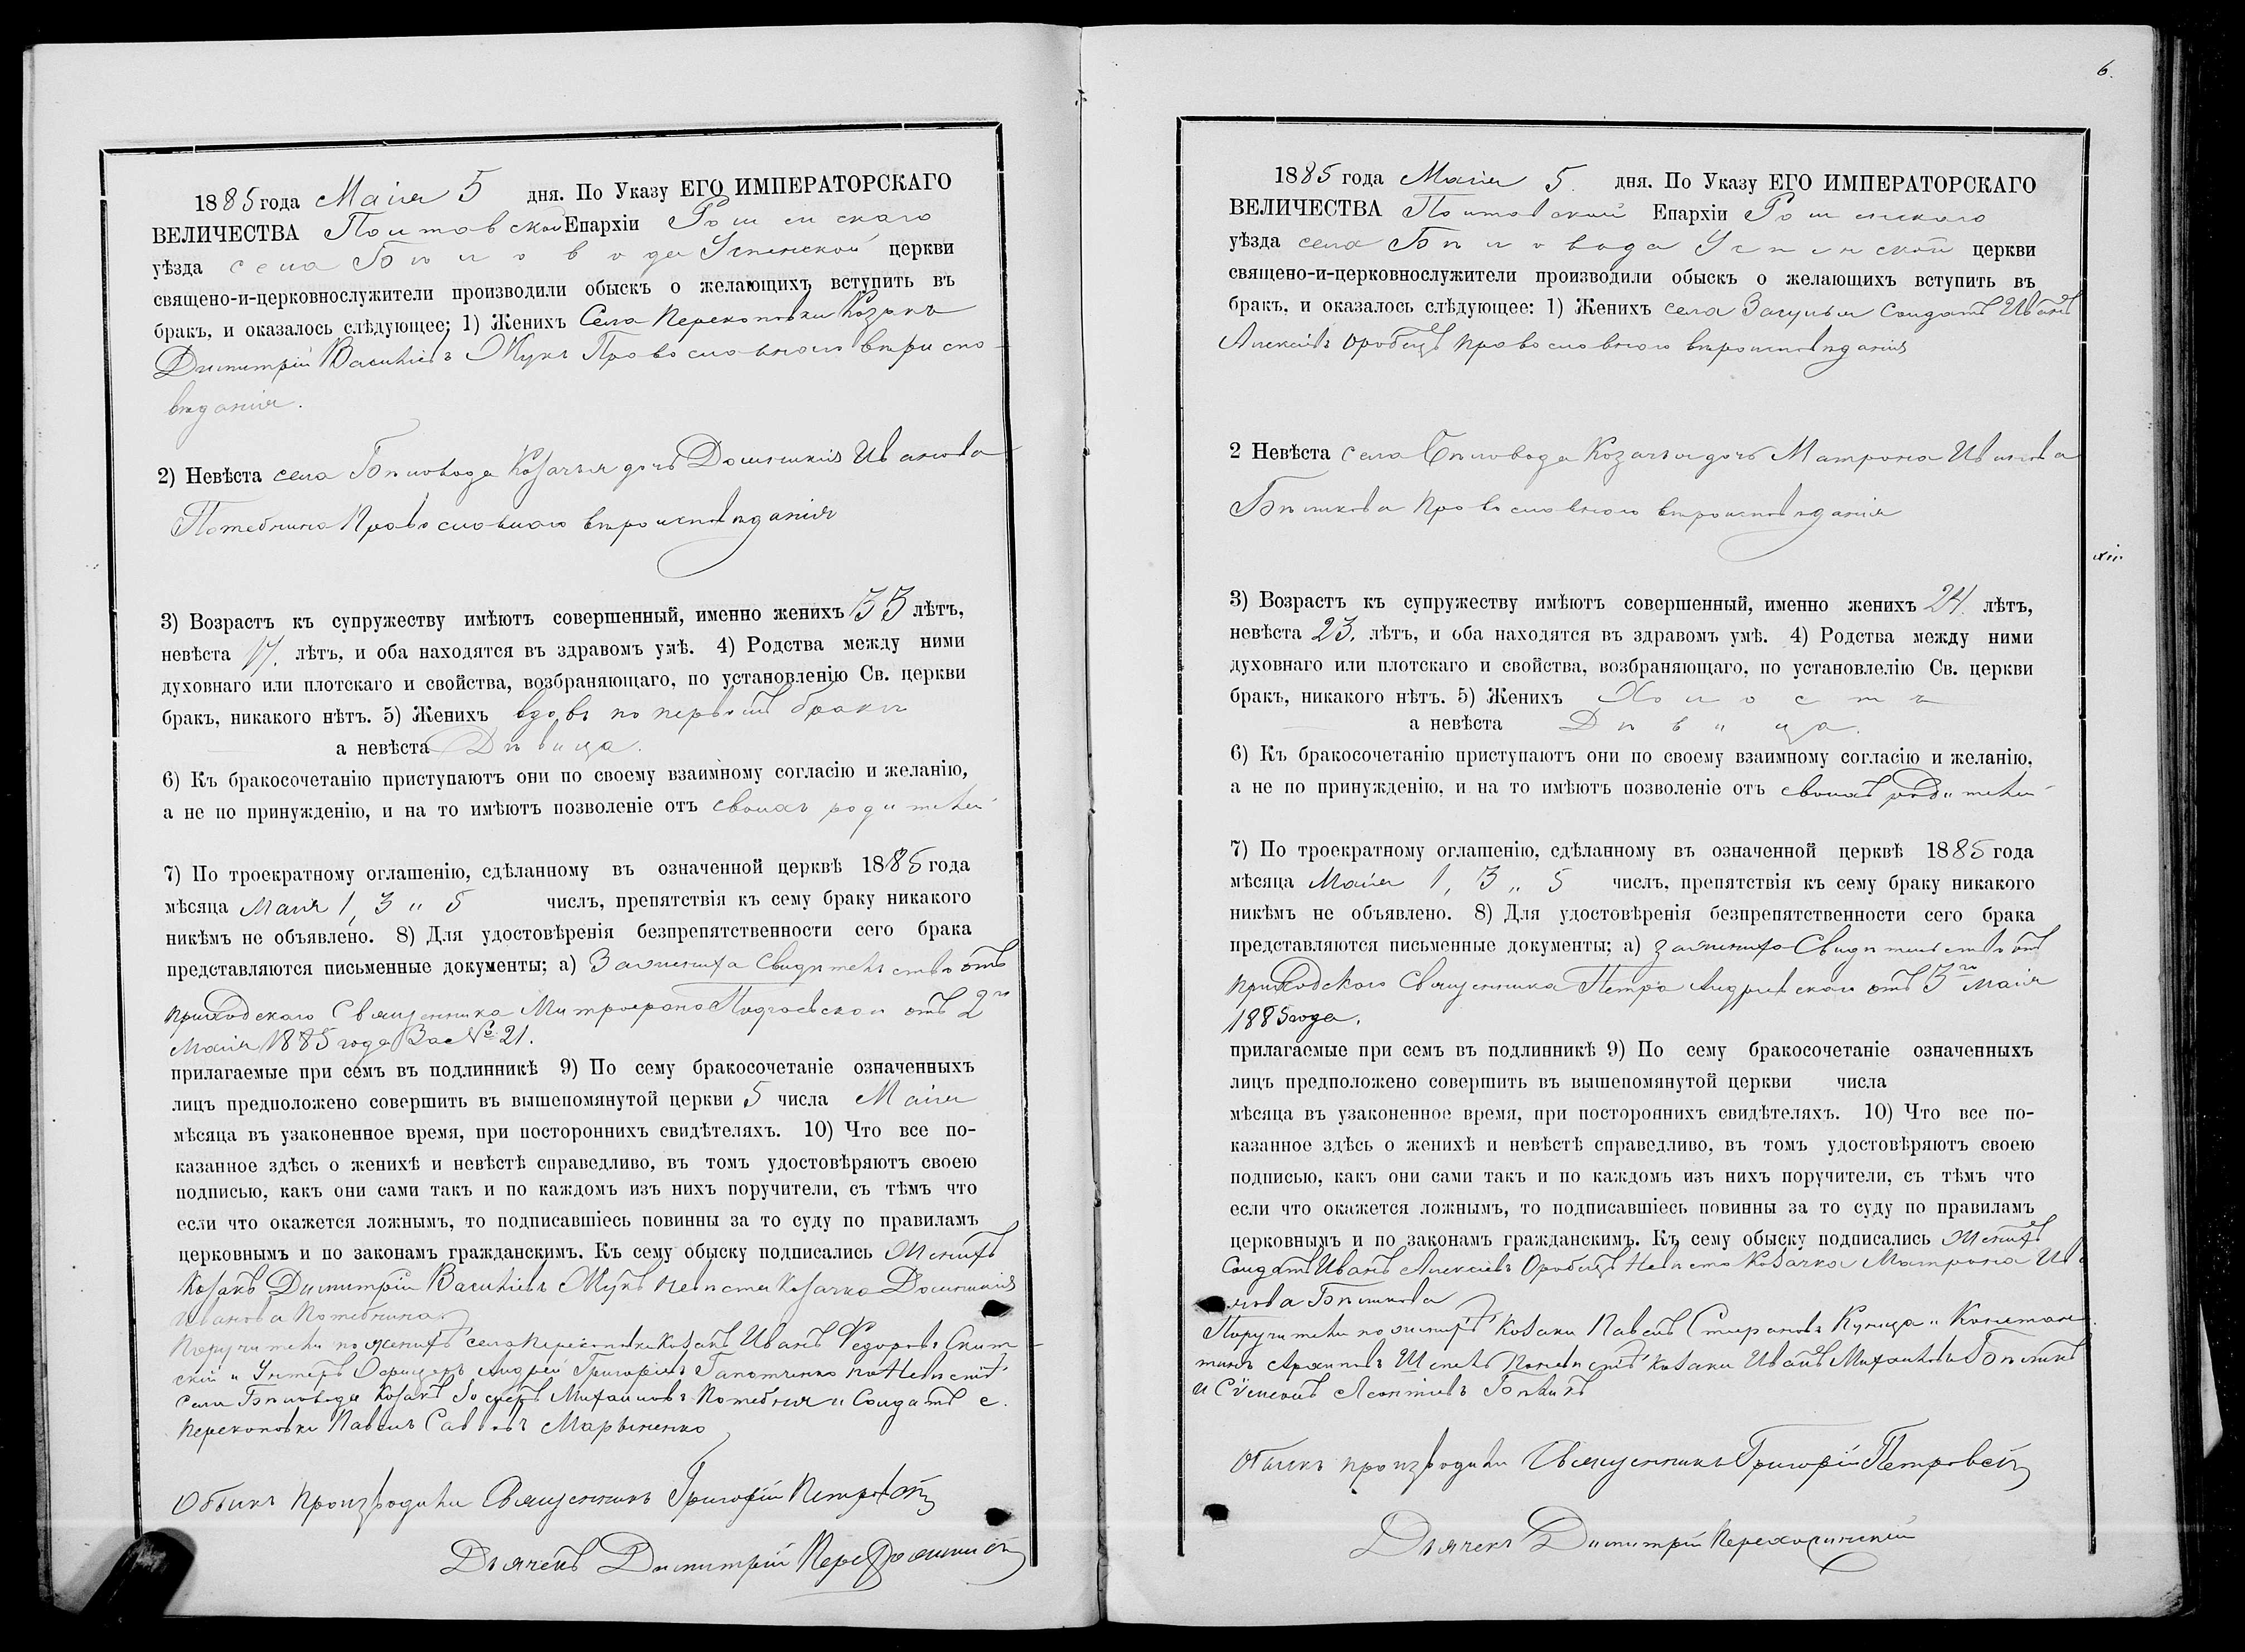 1885 года Маія 5 дня. По Указу ЕГО ИМПЕРАТОРСКАГО
ВЕЛИЧЕСТВА Полтавской Епархіи Роменскаго
уѣзда села Бѣловода Успенской церкви
священо-и-церковнослужители производили обыскъ о желающихъ вступить въ
бракъ, и оказалось слѣдующее; 1) Женихъ Села Перекоповки Козакъ
Димитрій Василіевъ Жукъ Православнаго вѣриспо-
вѣданія.
2) Невѣста села Бѣловода Козачья дочь Домникія Иванова
Потебнина Православнаго вѣроисповѣданія
3) Возрастъ къ супружеству имѣютъ совершенный, именно женихъ 33 лѣтъ,
невѣста 17. лѣтъ, и оба находятся въ здравомъ умѣ. 4) Родства между ними
духовнаго или плотскаго и свойства, возбраняющаго, по установленію Св. церкви
бракъ, никакого нѣтъ. 5) Женихъ вдовъ по первомъ бракѣ
а невѣста Дѣвица.
6) Къ бракосочетанію приступаютъ они по своему взаимному согласію и желанію,
а не по принужденію, и на то имѣютъ позволеніе отъ своихъ родителей
7) По троекратному оглашенію, сдѣланному въ означенной церквѣ 1885 года
мѣсяца Маія 1, 3 и 5 числъ, препятствія къ сему браку никакого
никѣмъ не объявлено. 8) Для удостовѣренія безпрепятственности сего брака
представляются письменные документы; а) За жениха Свидѣтельство отъ
приходскаго Священника Митрофана отъ 2го
Маія 1885 года За № 21.
прилагаемые при семъ въ подлинникѣ 9) По сему бракосочетаніе означенныхъ
лицъ предположено совершить въ вышепомянутой церкви 5 числа Маія
мѣсяца въ узаконенное время, при постороннихъ свидѣтеляхъ. 10) Что все по-
казанное здѣсь о женихѣ и невѣстѣ справедливо, въ томъ удостовѣряютъ своею
подписью, какъ они сами такъ и по каждомъ изъ нихъ поручители, съ тѣмъ что
если что окажется ложнымъ, то подписавшіесь повинны за то суду по правиламъ
церковнымъ и по законамъ гражданскимъ. Къ сему обыску подписались Женихъ
Козакъ Димитрій Василіевъ Жукъ невѣста Козачка Домникія
Иванова Потебнина
Поручители по женихѣ села Перекоповки Козакъ Иванъ Федоровъ Скит-
скій и Унтеръ Офицеръ Андрей Григоріевъ Гапотченко по Невѣстѣ
села Бѣловода Козакъ Іосифъ Михаиловъ Потебня и Солдатъ с.
Перекоповки Павелъ Саввовъ Мартыненко
Обыскъ производили Священникъ Григорій Петровскій
Дьячекъ Димитрій
6.
1885 года Маія 5. дня. По Указу ЕГО ИМПЕРАТОРСКАГО
ВЕЛИЧЕСТВА Полтавской Епархіи Роменскаго
уѣзда села Бѣловода Успенской церкви
священо-и-церковнослужители производили обыскъ о желающихъ вступить въ
бракъ, и оказалось слѣдующее: 1) Женихъ села Засулья Солдатъ Иванъ
Алексіевъ Оробецъ Православнаго вѣроисповѣданія
2 Невѣста села Бѣловода Козачья дочь Матрона Иванова
Бѣликова Православнаго вѣроисповѣданія
3) Возрастъ къ супружеству имѣютъ совершенный, именно женихъ 24. лѣтъ,
невѣста 23. лѣтъ, и оба находятся въ здравомъ умѣ. 4) Родства между ними
духовнаго или плотскаго и свойства, возбраняющаго, по установлелію Св. церкви
бракъ, никакого нѣтъ. 5) Женихъ Холостъ
а невѣста Дѣвица.
6) Къ бракосочетанію приступаютъ они по своему взаимному согласію и желанію,
а не по принужденію, и на то имѣютъ позволеніе отъ своихъ родителей
7) По троекратному оглашенію, сдѣланному въ означенной церквѣ 1885 года
мѣсяца Маія 1, 3 и 5 числъ, препятствія къ сему браку никакого
никѣмъ не объявлено. 8) Для удостовѣренія безпрепятственности сего брака
представляются письменные документы; а) за жениха Свидѣтельство отъ
приходскаго Священника Петра Андріевскаго отъ 3го Маія
1885 года.
прилагаемые при семъ въ подлинникѣ 9) По сему бракосочетаніе означенныхъ
лицъ предположено совершить въ вышепомянутой церкви числа
мѣсяца въ узаконенное время, при постороннихъ свидѣтеляхъ. 10) Что все по-
казанное здѣсь о женихѣ и невѣстѣ справедливо, въ томъ удостовѣряютъ своею
подписью, какъ они сами такъ и по каждомъ изъ нихъ поручители, съ тѣмъ что
если что окажется ложнымъ, то подписавшіесь повинны за то суду по правиламъ
церковнымъ и по законамъ гражданскимъ. Къ сему обыску подписались Женихъ
Солдатъ Иванъ Алексіевъ Оробецъ Невѣста Козачка Матрона Ива
нова Бѣликова
Поручители по женихѣ Козаки Павелъ Стефановъ Куница и Констан
тинъ Архиповъ по невѣстѣ Козаки Иванъ Михаиловъ Бѣликъ
и Сѵмеонъ Леонтіевъ Бѣликъ
Обыскъ производили Священникъ Григорій Петровскій
Дьячекъ Димитрій